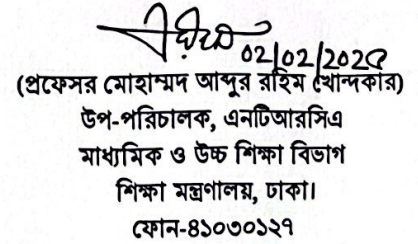 ০২/০২/২০২৫
(প্রফেসর মোহাম্মদ আব্দুর রহিম খোন্দকার)
উপ-পরিচালক, এনটিআরসিএ
মাধ্যমিক ও উচ্চ শিক্ষা বিভাগ
শিক্ষা মন্ত্রণালয়, ঢাকা।
ফোন-৪১০৩০১২৭